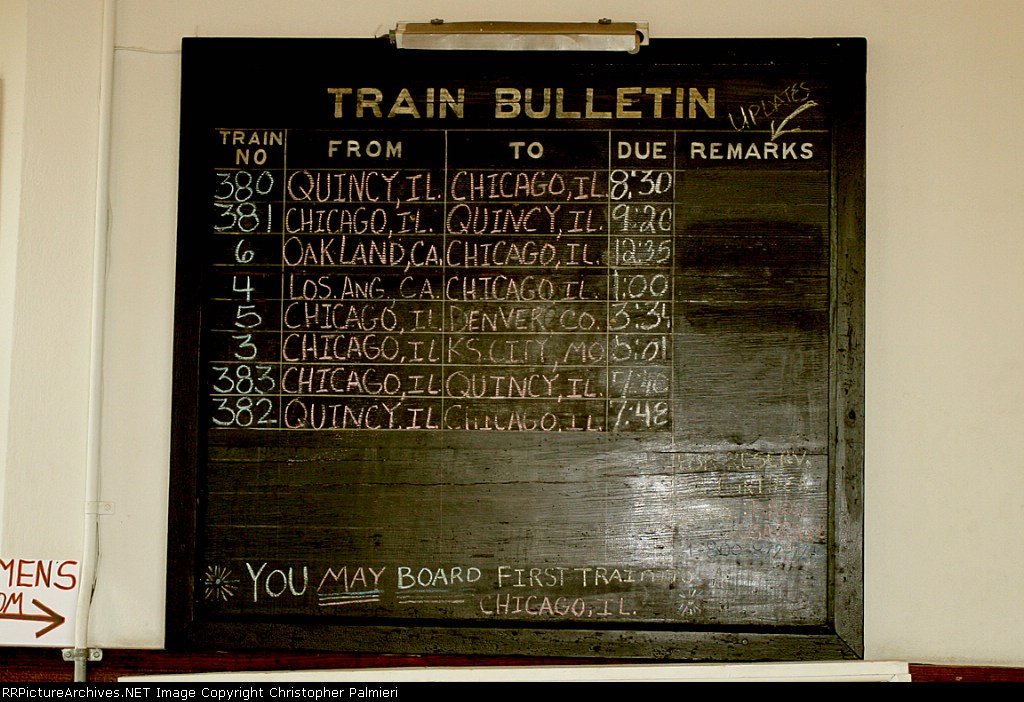 TRAIN BULLETIN
UPDATES
TRAIN NO FROM TO DUE REMARKS
380 QUINCY, IL. CHICAGO, IL. 8:30
381 CHICAGO, IL. QUINCY, IL. 9:20
6 OAKLAND, CA. CHICAGO, IL. 12:35
4 LOS. ANG. CA. CHICAGO IL. 1:00
5 CHICAGO, IL DENVER CO. 3:34
3 CHICAGO, IL KS. CITY, MO
383 CHICAGO, IL QUINCY, IL.
382 QUINCY. IL CHICAGO, IL. 7:48
YOU MAY BOARD FIRST TRAIN
CHICAGO, IL.
MEN'S
OM
RailPictureArchives.NET Image Copyright Christopher Palmieri